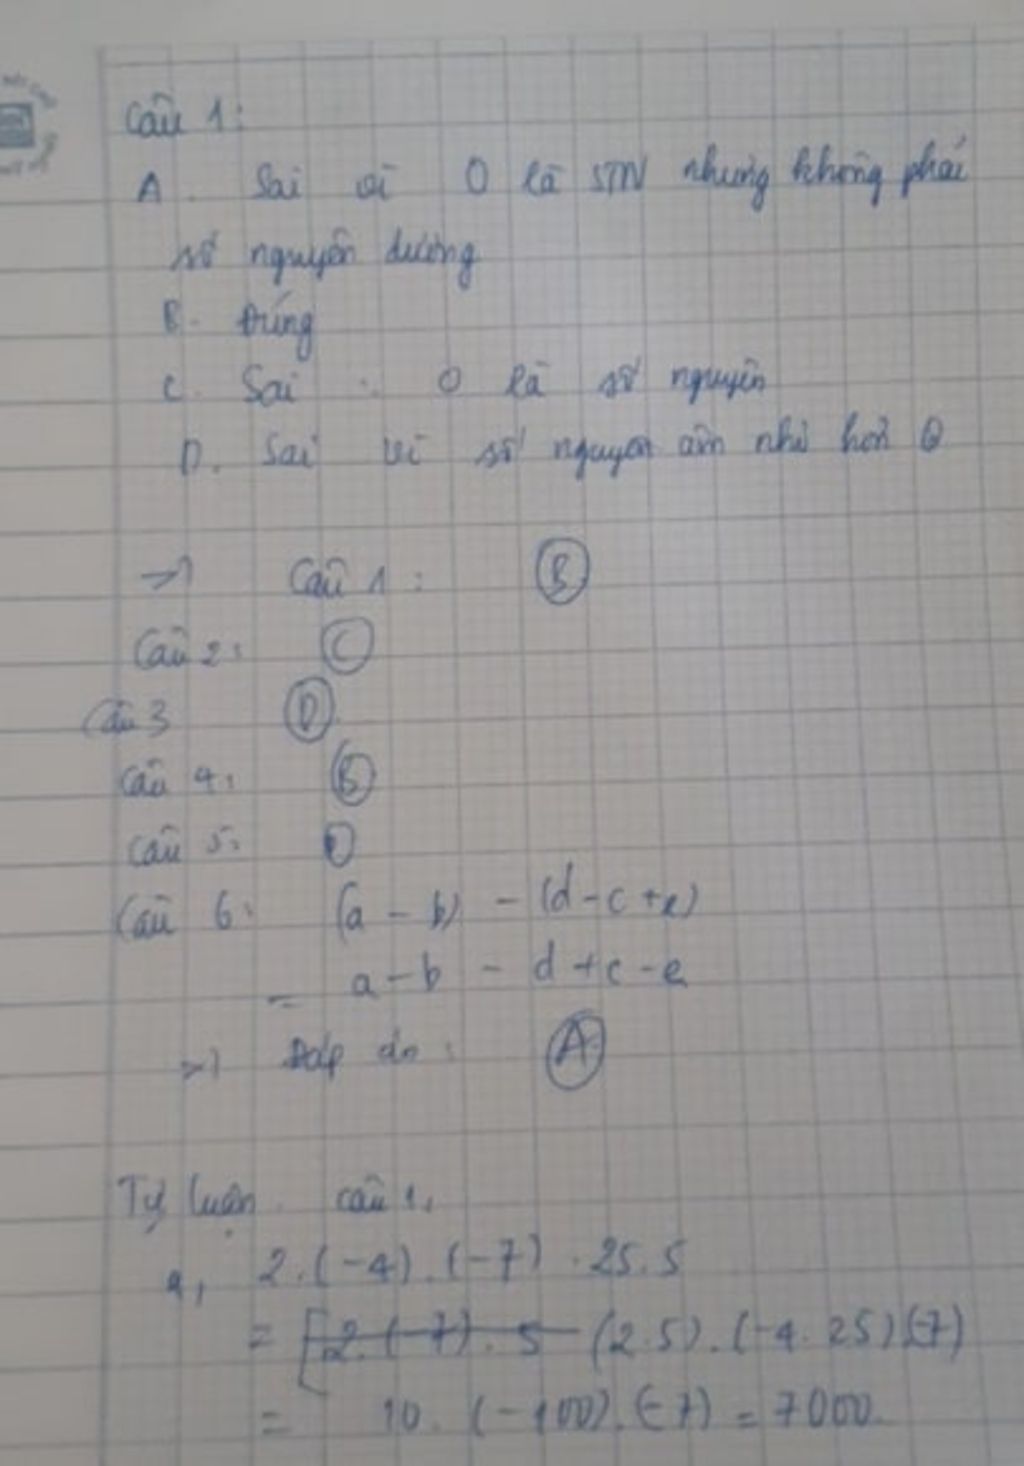 Câu 1:
A. Sai vì 0 là STN nhưng không phải
số nguyên dương
B. Đúng
C. Sai : 0 là số nguyên
D. Sai vì số nguyên âm nhỏ hơn 0
=> Câu 1: B
Câu 2: C
Câu 3 D
Câu 4: B
Câu 5:
Câu 6: (a - b) - (d - c + e)
= a - b - d + c - e
=> Đáp án: A
Tự luận. câu 1,
a, 2.(-4).(-7).25.5
= [2.(-7).5 (2.5).(-4.25)(-7)
= 10.(-100).(-7) = 7000.